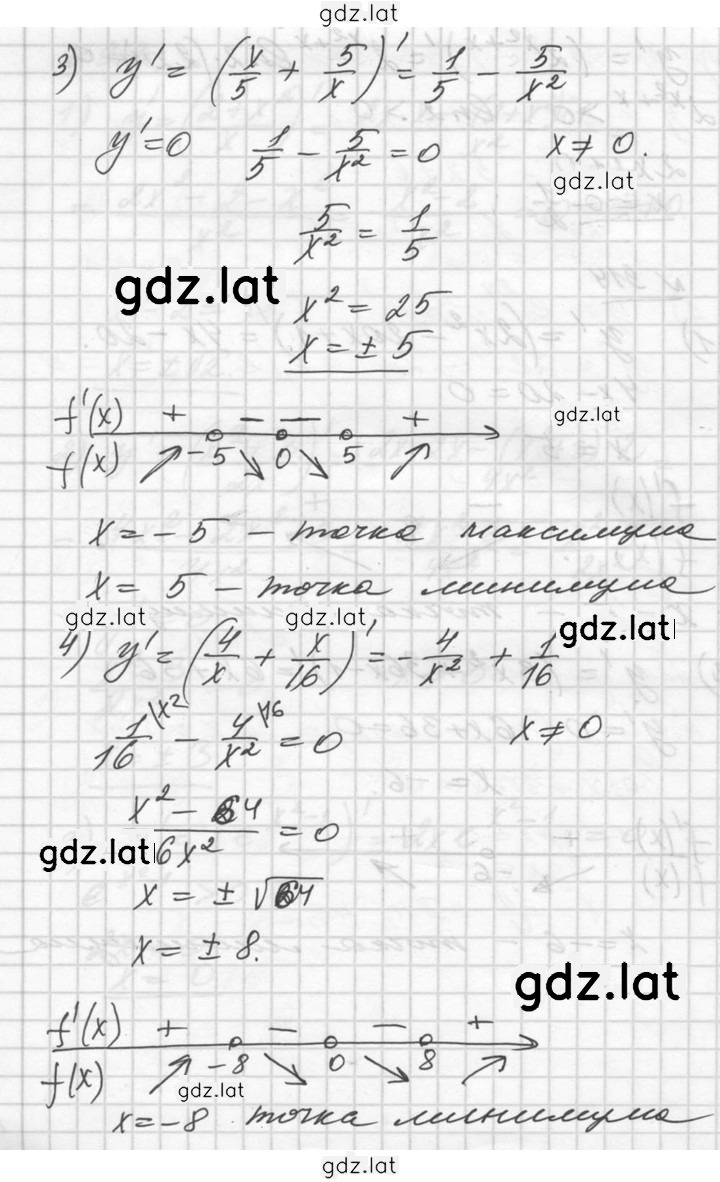 gdz.lat
3) y' = (x/5 + 5/x)' = 1/5 - 5/x²
y' = 0 1/5 - 5/x² = 0 x ≠ 0.
gdz.lat
5/x² = 1/5
gdz.lat
x² = 25
x = ± 5
f'(x) + — — + gdz.lat
f(x) ↗ -5 ↘ 0 ↘ 5 ↗
x = - 5 - точка максимума
x = 5 - точка минимума
gdz.lat gdz.lat gdz.lat
4) y' = (4/x + x/16)' = - 4/x² + 1/16
1/16 \x² - 4/x² \16 = 0 x ≠ 0.
x² - 64
gdz.lat 6x² = 0
x = ± √64
x = ± 8.
gdz.lat
f'(x) + — — +
f(x) ↗ -8 ↘ 0 ↘ 8 ↗
gdz.lat
x = -8 точка минимума
gdz.lat